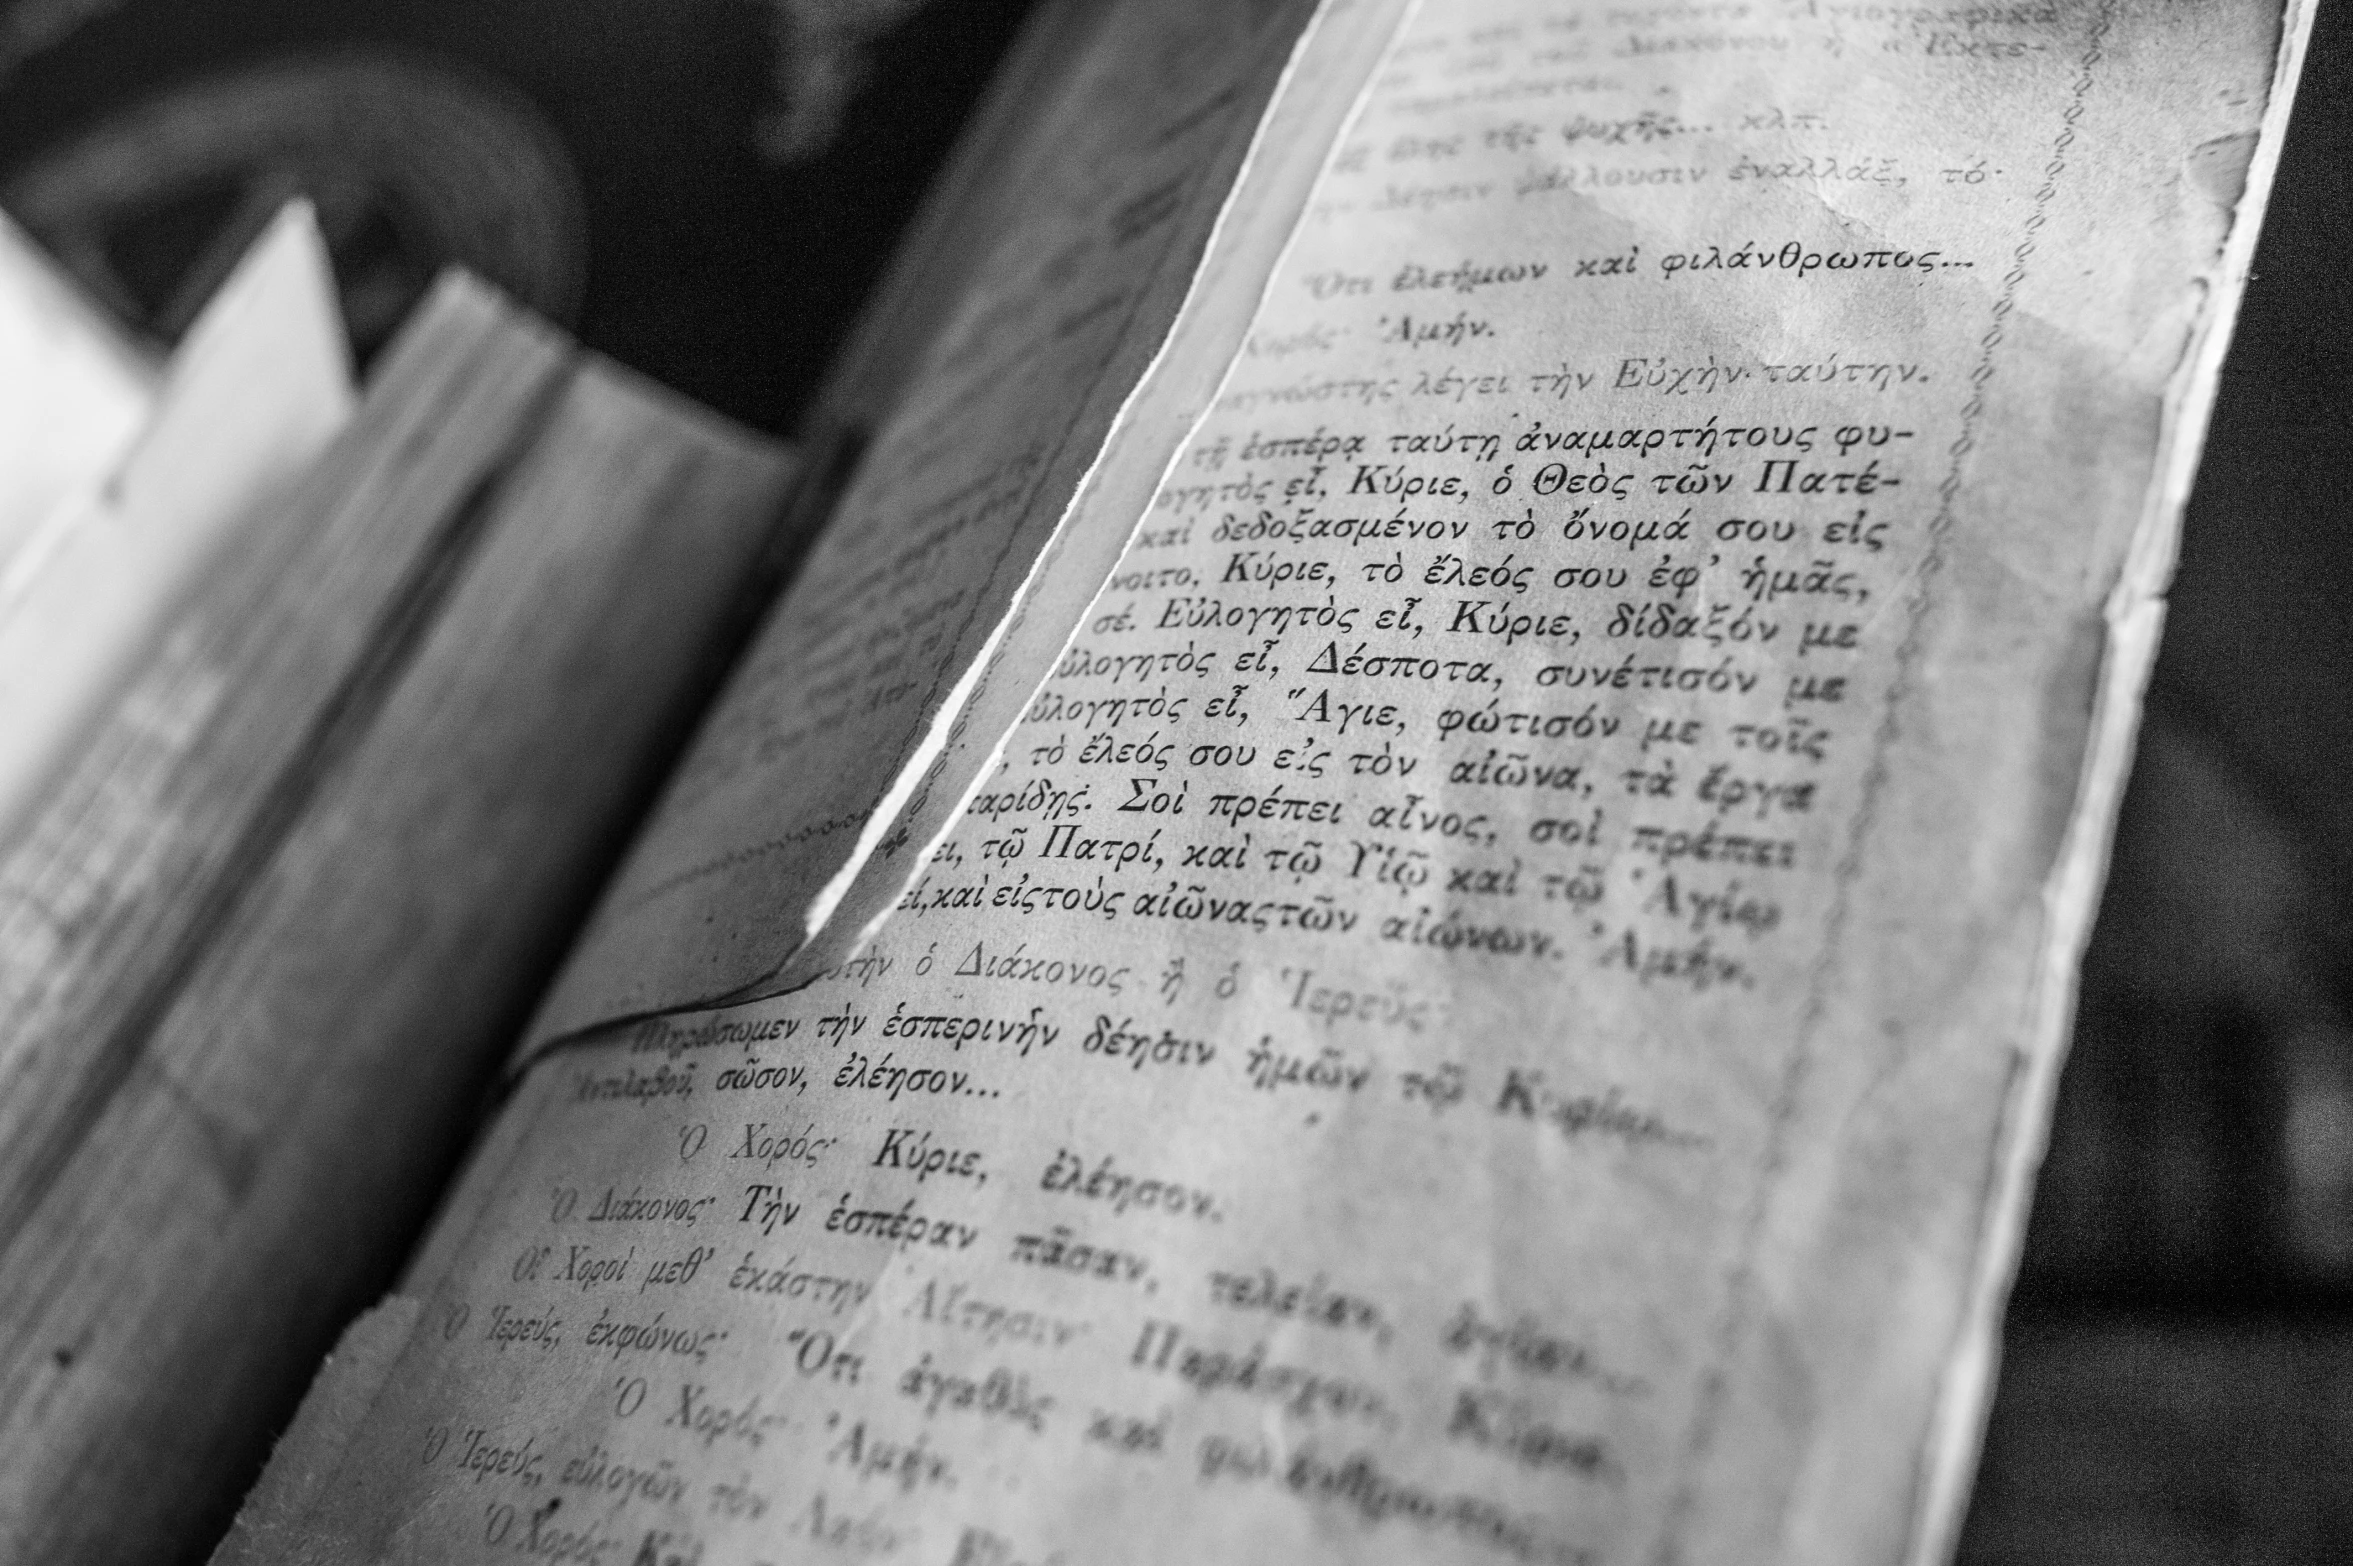 τῆς ψυχῆς... κλπ.
ψάλλουσιν ἐναλλάξ, τό·
Ὅτι ἐλεήμων καὶ φιλάνθρωπος...
Χορός· Ἀμήν.
λέγει τὴν Εὐχὴν ταύτην.
τῇ ἑσπέρᾳ ταύτῃ ἀναμαρτήτους φυ-
ογητὸς εἶ, Κύριε, ὁ Θεὸς τῶν Πατέ-
καὶ δεδοξασμένον τὸ ὄνομά σου εἰς
νοιτο, Κύριε, τὸ ἔλεός σου ἐφ' ἡμᾶς,
σέ. Εὐλογητὸς εἶ, Κύριε, δίδαξόν με
ὐλογητὸς εἶ, Δέσποτα, συνέτισόν με
ὐλογητὸς εἶ, Ἅγιε, φώτισόν με τοῖς
, τὸ ἔλεός σου εἰς τὸν αἰῶνα, τὰ ἔργα
αρίδῃς. Σοὶ πρέπει αἶνος, σοὶ πρέπει
ει, τῷ Πατρί, καὶ τῷ Υἱῷ καὶ τῷ Ἁγίῳ
εί, καὶ εἰς τοὺς αἰῶνας τῶν αἰώνων. Ἀμήν.
τὴν ὁ Διάκονος ἢ ὁ Ἱερεύς·
Πληρώσωμεν τὴν ἑσπερινὴν δέησιν ἡμῶν τῷ Κυρίῳ...
Ἀντιλαβοῦ, σῶσον, ἐλέησον...
Ὁ Χορός· Κύριε, ἐλέησον.
Ὁ Διάκονος· Τὴν ἑσπέραν πᾶσαν, τελείαν, ἁγίαν...
Οἱ Χοροὶ μεθ' ἑκάστην Αἴτησιν· Παράσχου, Κύριε.
Ὁ Ἱερεύς, ἐκφώνως· Ὅτι ἀγαθὸς καὶ φιλάνθρωπος
Ὁ Χορός· Ἀμήν.
Ὁ Ἱερεύς, εὐλογῶν τὸν Λαόν·
Ὁ Χορός· Καὶ